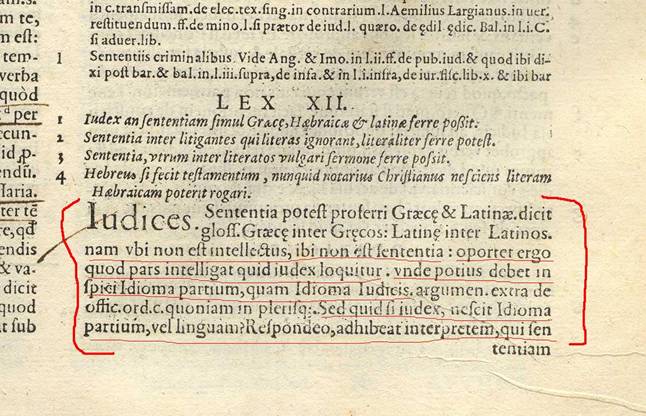 in c.transmissam.de elec.tex.sing.in contrarium.l.Aemilius Largianus.in uer.
restituendum.ff.de mino.l.si prætor de iud.l.quæro.de ędil ędic.Bal.in l.i.C.
si aduer.lib.
1 Sententiis criminalibus. Vide Ang. & Imo.in l.ii.ff.de pub.iud.& quod ibi di-
xi post bar.& bal.in l.iii.supra, de infa.& in l.i.infra, de iur.fisc.lib.x.& ibi bar
LEX XII.
1 Iudex an sententiam simul Græcę, Hæbraicæ & latinæ ferre poßit.
2 Sententia inter litigantes qui literas ignorant, literaliter ferre potest.
3 Sententia, vtrum inter literatos vulgari sermone ferre poßit.
4 Hebreus si fecit testamentum, nunquid notarius Christianus nesciens literam
Hæbraicam poterit rogari.
Iudices. Sententia potest proferri Græcę & Latinæ.dicit
gloss. Græcę inter Gręcos: Latinę inter Latinos.
nam vbi non est intellectus, ibi non est sententia : oportet ergo
quod pars intelligat quid iudex loquitur . vnde potius debet in
spici Idioma partium, quam Idioma Iudicis. argumen. extra de
offic.ord.c. quoniam in plerisq;. Sed quid si iudex, nescit Idioma
partium, vel linguam? Respondeo, adhibeat interpretem, qui sen
tentiam
te,
m est:
tem-
verba
quòd
per
cun-
id,p-
endū.
laria.
ter tē
re,qd
endis
& va-
dicit
quod
ut sub